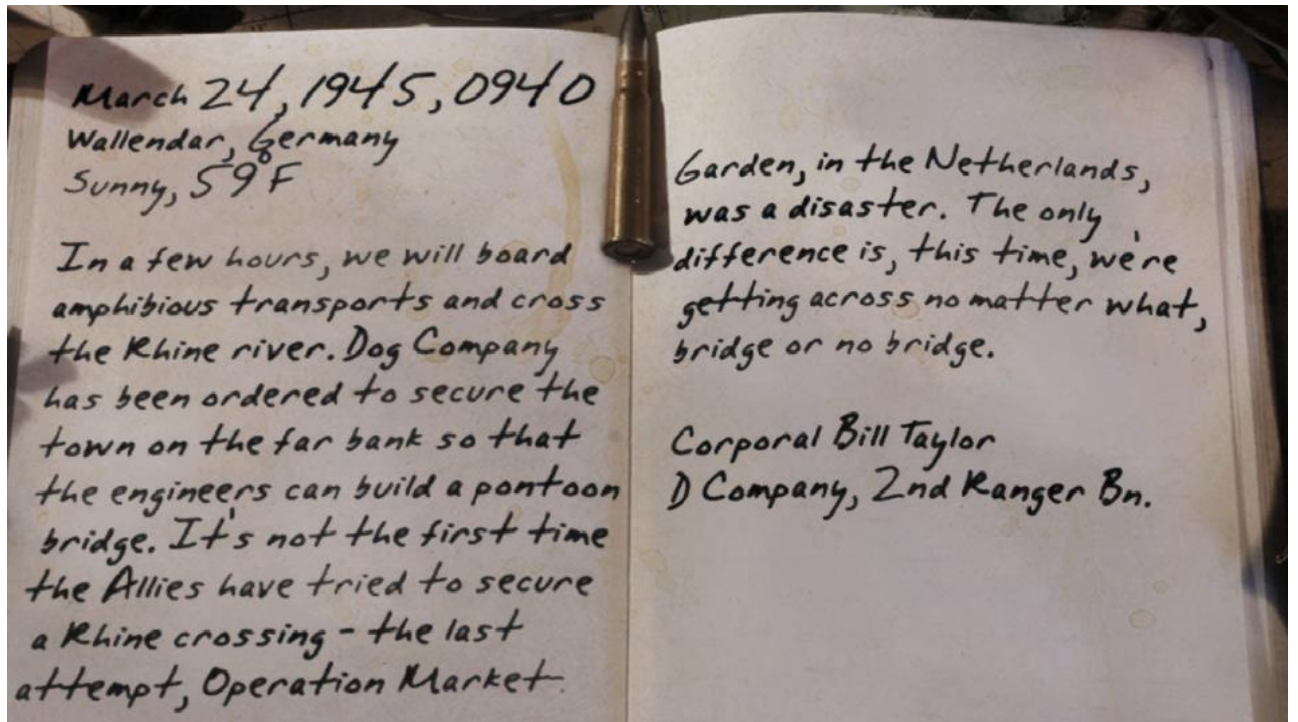 March 24, 1945, 0940
Wallendar, Germany
Sunny, 59°F
In a few hours, we will board
amphibious transports and cross
the Rhine river. Dog Company
has been ordered to secure the
town on the far bank so that
the engineers can build a pontoon
bridge. It's not the first time
the Allies have tried to secure
a Rhine crossing - the last
attempt, Operation Market
Garden, in the Netherlands,
was a disaster. The only
difference is, this time, we're
getting across no matter what,
bridge or no bridge.
Corporal Bill Taylor
D Company, 2nd Ranger Bn.